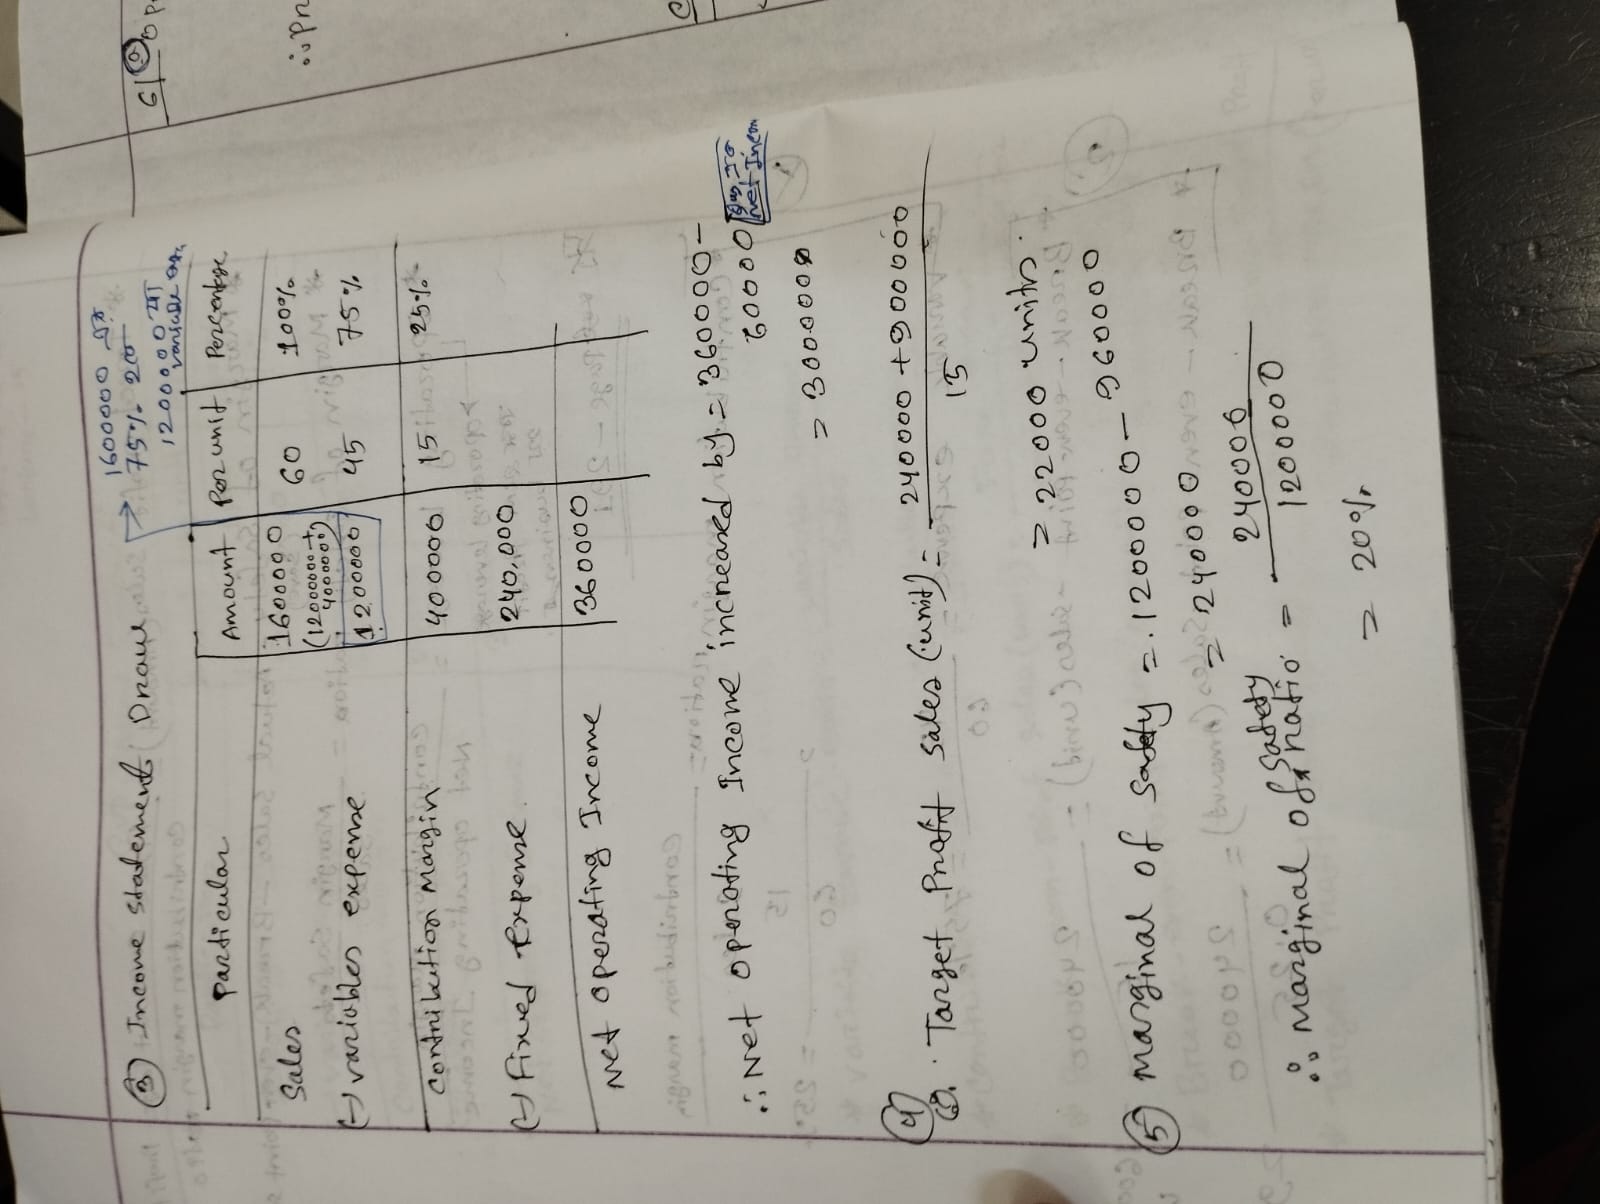 ③ Income Statement (Draw
1600000 এর
75% হল
1200000 টা
variable
Particular Amount Per unit Percentage
Sales 1600000 60 100%
(1200000+
400000)
(-) variables expense 1200000 45 75%
Contribution Margin 400000 15 25%
(-) Fixed Expense 240,000
Net operating Income 360000
∴ Net operating Income increased by = 360000 -
60000
Net Incom
= 3000000
④ Target Profit Sales (unit) = 240000 + 900000
15
= 22000 units.
⑤ Marginal of Safety = 1200000 - 960000
= 240000
∴ Marginal of Safety ratio = 240000
1200000
= 20%
6
∴ Pr